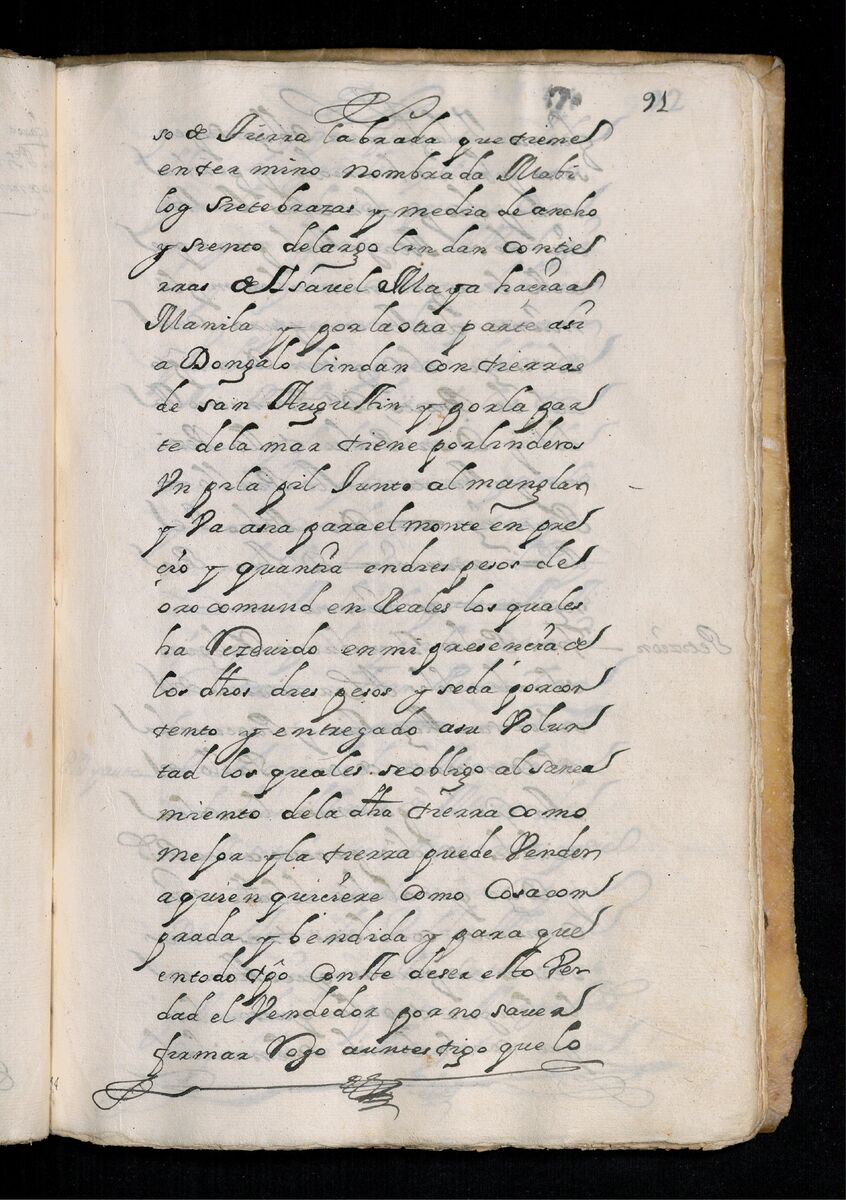 91
so de Tierra labrada que tiene
en termino nombrada Mabi
log sietebrazas y media de ancho
y siento delargo lindan contie
rras de Isavel Maya haciaa
Manila y por la otra parte asi
a Dongalo lindan con tierras
de san Augustin y por la par
te dela mar tiene por linderos
Vn pila pil Junto al manglar
y Va asia para el monte en pre
cio y quantia endres pesos de
oro comund en Reales los quales
ha Rezeuido en mi presencia de
los dhos dres pesos y seda por con
tento y entregado asu Volun
tad los quales se obligo al sanea
miento dela dha tierra como
mejor y la tierra puede Vender
aquien quiciere como Cosa com
prada y bendida y para que
entodo tpo Conste deser esto Ver
dad el Vendedor por no saver
firmar Rogo auntestigo que lo